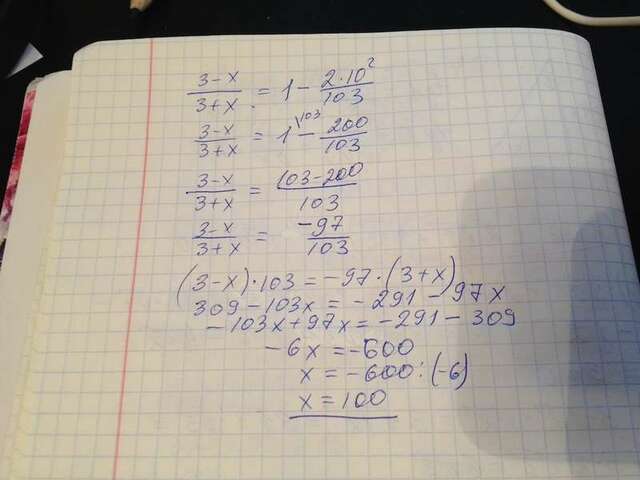 3-x/3+x = 1 - 2·10²/103
3-x/3+x = 1\103 - 200/103
3-x/3+x = 103-200/103
3-x/3+x = -97/103
(3-x)·103 = -97·(3+x)
309-103x = -291-97x
-103x+97x = -291-309
-6x = -600
x = -600:(-6)
x = 100